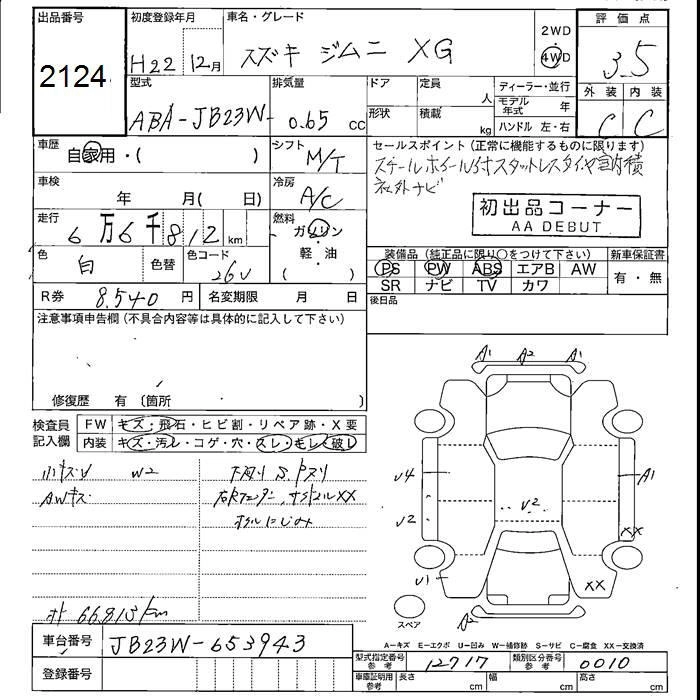 出品番号
2124
初度登録年月
H22 12月
車名・グレード
スズキ ジムニ XG
2WD
4WD
評価点
3.5
外装 内装
C C
型式
ABA-JB23W-
排気量
0.65 cc
ドア
形状
定員
人
積載
kg
ディーラー・並行
モデル年式 年
ハンドル 左・右
車歴
自家用・( )
シフト
M/T
セールスポイント(正常に機能するものに限ります)
スチールホイール付スタットレスタイヤ室内積
社外ナビ
初出品コーナー
AA DEBUT
車検
年 月( 日)
冷房
A/C
走行
6万6千812 km
燃料
ガソリン
・
軽・油
( )
色
白
色替
色コード
26U
装備品(純正品に限り○をつけて下さい)
新車保証書
PS PW ABS エアB AW
SR ナビ TV カワ
有・無
R券 8.540 円
名変期限 月 日
後日品
注意事項申告欄(不具合内容等は具体的に記入して下さい)
修復歴 有 (箇所 )
検査員
記入欄
FW キズ・飛石・ヒビ割・リペア跡・X要
内装 キズ・汚レ・コゲ・穴・スレ・モレ・破レ
小キズ W2
AWキズ
下廻りS.Pスリ
A1 A2 A1
U4
U2
U2
U1
A1
XX
XX
A2
スペア
A-キズ E-エクボ U-凹み W-補修跡 S-サビ C-腐食 XX-交換済
車台番号
JB23W-653943
登録番号
型式指定番号
参考
12717
類別区分番号
参考
0010
車庫証明用
参考
長さ cm
幅 cm
高さ cm